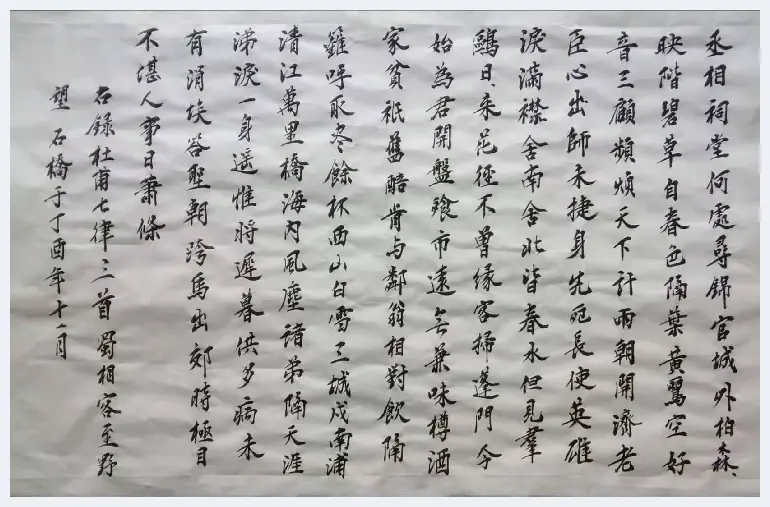 丞相祠堂何處尋錦官城外柏森、
映階碧草自春色隔葉黃鸝空好
音三顧頻煩天下計兩朝開濟老
臣心出師未捷身先死長使英雄
淚滿襟舍南舍北皆春水但見羣
鷗日、來花徑不曾緣客掃蓬門今
始為君開盤飧市遠無兼味樽酒
家貧祇舊醅肯与鄰翁相對飲隔
籬呼取盡餘杯西山白雪三城戍南浦
清江萬里橋海內風塵諸弟隔天涯
涕淚一身遥惟將遲暮供多病未
有涓埃答聖朝跨馬出郊時極目
不堪人事日蕭條
右錄杜甫七律三首蜀相客至野
望石橋于丁酉年十一月